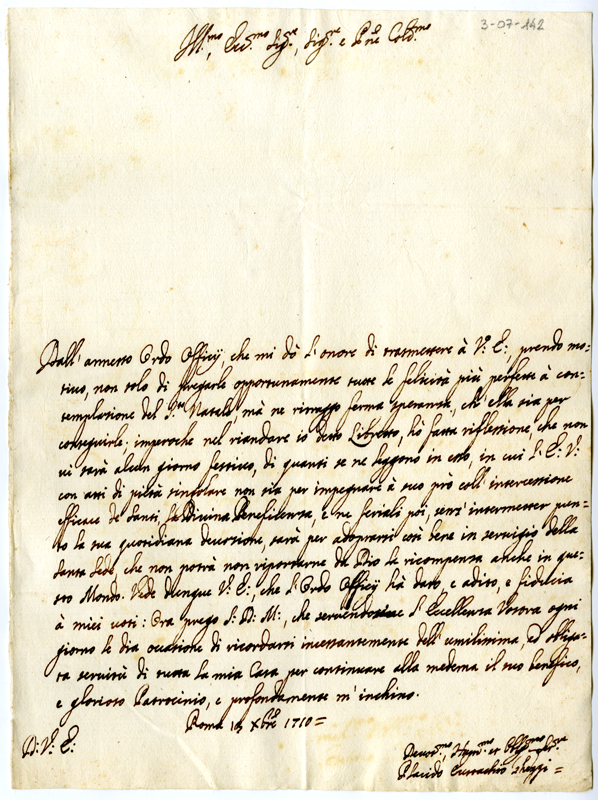 3-07-142
Ill.mo, Ecc.mo Sig.r, Sig.r e Pne Col.mo
Dall' annesso Ordo Officij, che mi dò l' onore di trasmettere à V.E., prendo mo-
tiuo, non solo di pregarle opportunamente tutte le felicità più perfette à con-
templazione del S.to Natale, mà ne ritraggo ferma speranza, ch' ella sia per
conseguirle; imperoche nel riandare io detto Libretto, hò fatta riflessione, che non
ui sarà alcun giorno festiuo, di quanti se ne leggono in esso, in cui l' E. V.
con atti di pietà singolare non sia per impegnare à suo prò coll' intercessione
efficace de Santi, la Diuina Beneficenza, e ne feriali poi, senz' intermetter pun-
to la sua quotidiana deuozione, sarà per adoprarsi così bene in seruigio della
Santa Sede, che non potrà non riportarne da Dio la ricompensa anche in que-
sto Mondo. Vede dunque V. E., che l' Ordo Officij hà dato, e adito, e fiducia
à miei uoti: Ora prego S. D. M., che l' Eccellenza Vostra ogni
giorno le dia occasione di ricordarsi incessantemente dell' umilissima, ed obliga-
ta seruitù di tutta la mia Casa per continuare alla medema il suo benefico,
e glorioso Patrocinio, e profondamente m' inchino.
Roma Xbre 1710=
D. V. E.
Deuot.mo, Hum.mo et Obl.mo
Placido Eustachio Ghezzi=